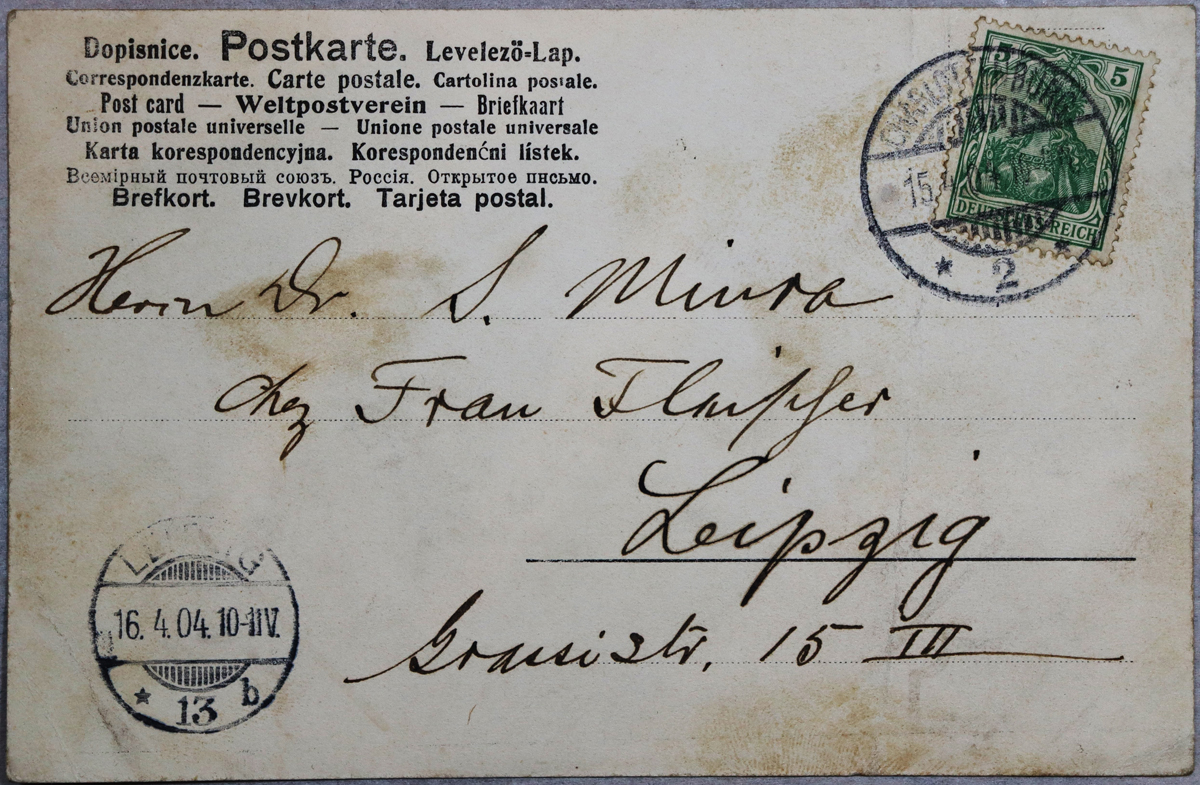 Dopisnice. Postkarte. Levelezö-Lap.
Correspondenzkarte. Carte postale. Cartolina postale.
Post card — Weltpostverein — Briefkaart
Union postale universelle — Unione postale universale
Karta korespondencyjna. Korespondenćni lístek.
Всемірный почтовый союзъ. Россія. Открытое письмо.
Brefkort. Brevkort. Tarjeta postal.
5 5
DEUTSCHES REICH
CHARLOTTENBURG
15.4.04
* 2 *
Herrn Dr. S. Miura
chez Frau Fleischer
Leipzig
Grassistr. 15 III
LEIPZIG
16. 4. 04. 10-11V.
* 13 b